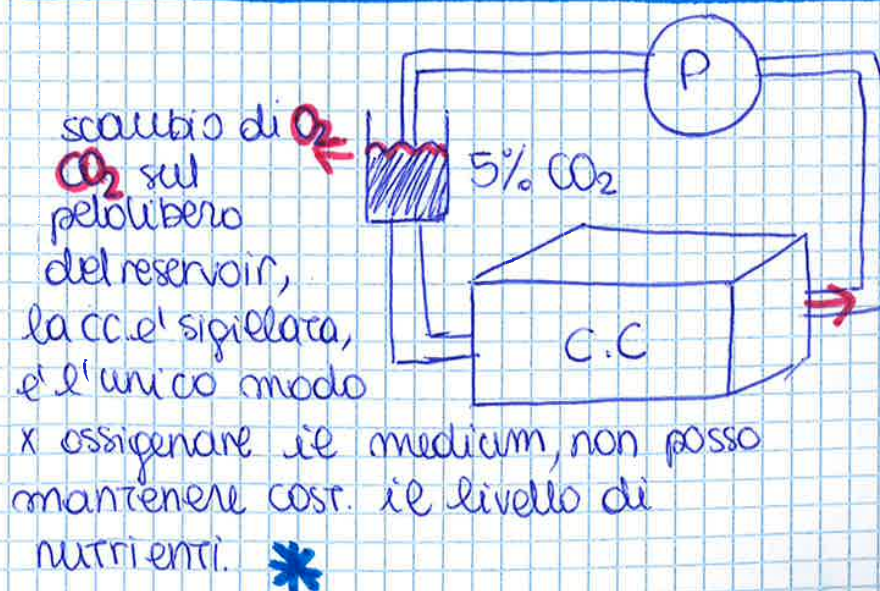 P
scambio di O₂
CO₂ sul
5% CO₂
pelolibero
del reservoir,
la cc. e' sigillata,
C.C
e' l'unico modo
x ossigenare il medium, non posso
mantenere cost. il livello di
nutrienti. *